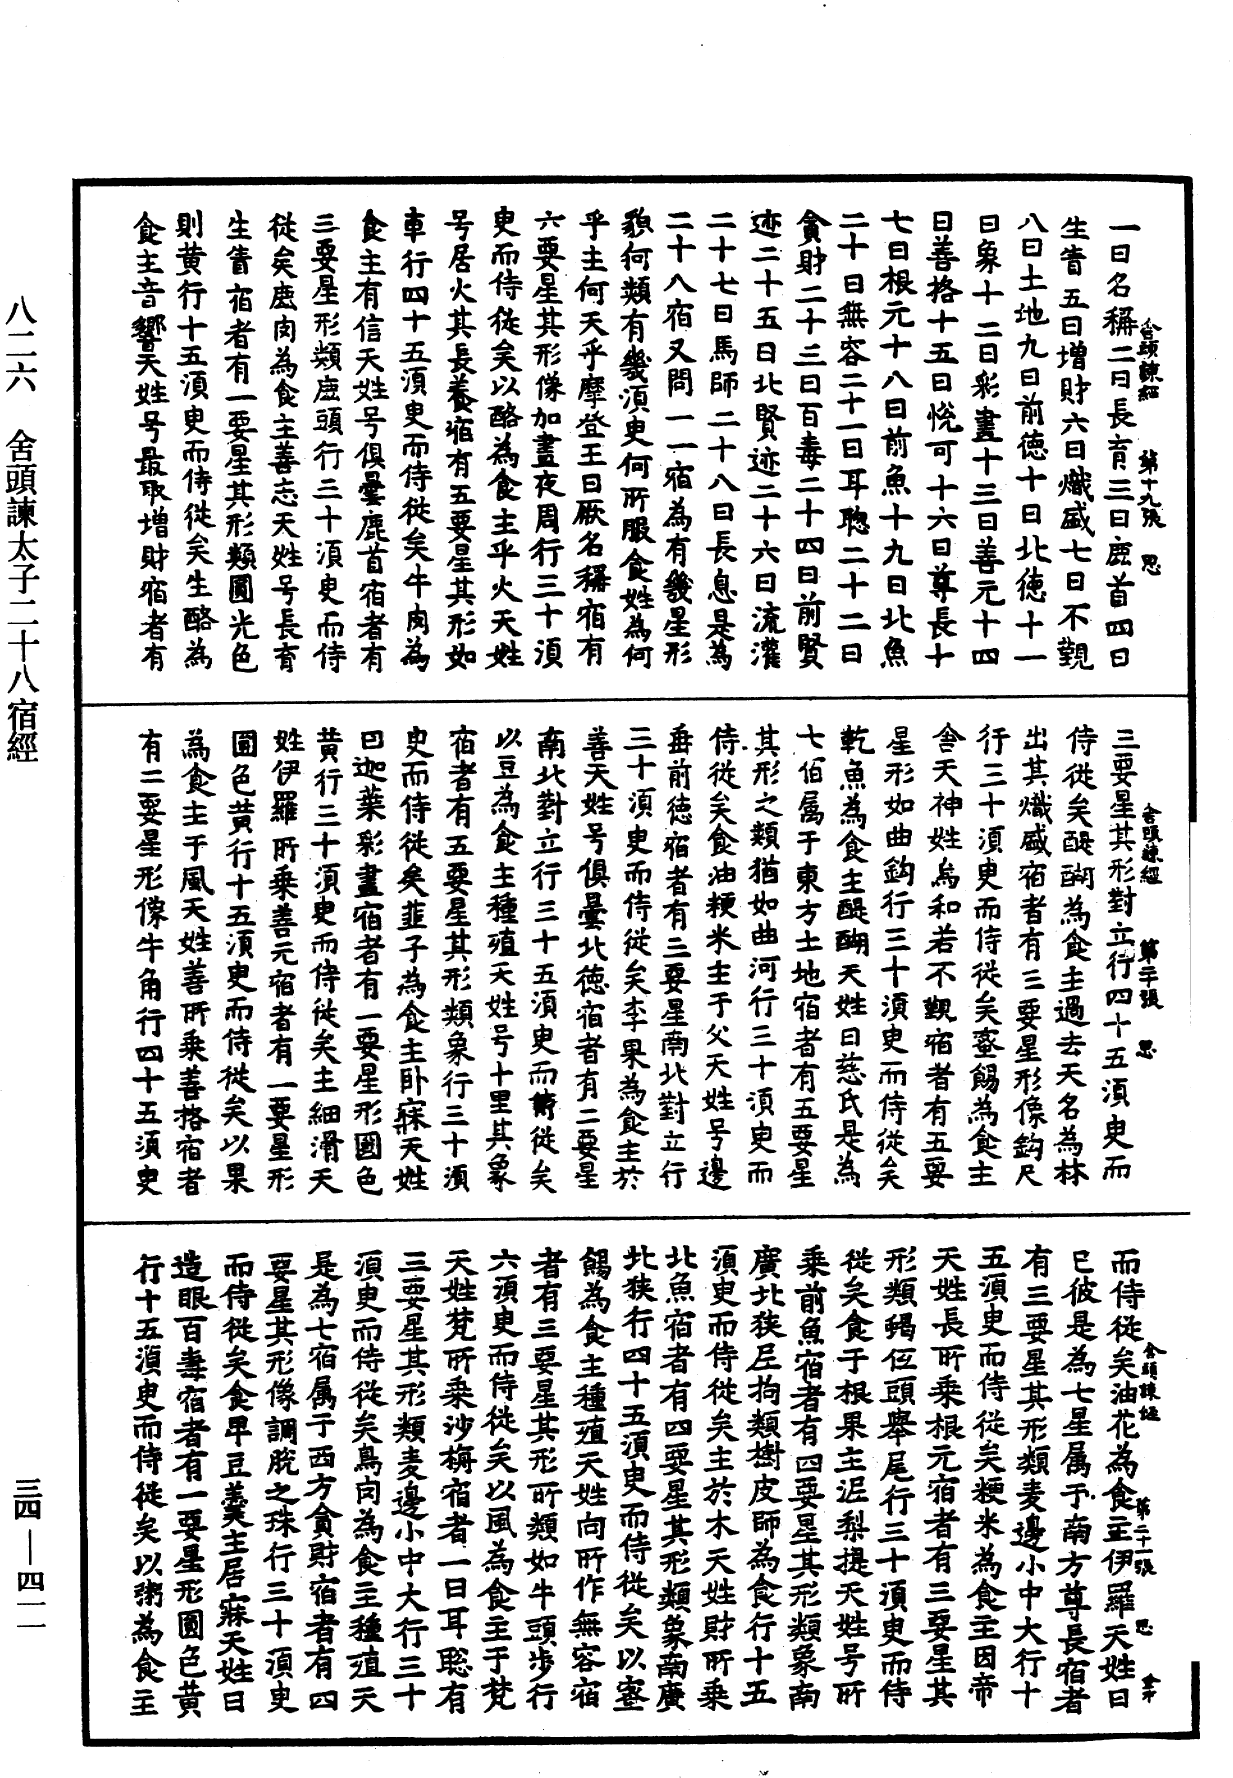 一曰名稱二曰長育三曰鹿首四曰
生眚五曰增財六曰熾盛七曰不覲
八曰土地九曰前德十曰北德十一
曰象十二曰彩畫十三曰善元十四
曰善格十五曰悅可十六曰尊長十
七曰根元十八曰前魚十九曰北魚
二十曰無容二十一曰耳聰二十二曰
貪財二十三曰百毒二十四曰前賢
迹二十五曰北賢迹二十六曰流灌
二十七曰馬師二十八曰長息是為
二十八宿又問一一宿為有幾星形
貌何類有幾須臾何所服食姓為何
乎主何天乎摩登王曰厥名稱宿有
六要星其形像加晝夜周行三十須
臾而侍從矣以酪為食主乎火天姓
号居火其長養宿有五要星其形如
車行四十五須臾而侍從矣牛肉為
食主有信天姓号俱曇鹿首宿者有
三要星形類鹿頭行三十須臾而侍
從矣鹿肉為食主善志天姓号長育
生眚宿者有一要星其形類圓光色
則黃行十五須臾而侍從矣生酪為
食主音響天姓号最取增財宿者有
舍頭諫經 第十九張 思
三要星其形對立行四十五須臾而
侍從矣醍醐為食主過去天名為林
出其熾盛宿者有三要星形像鈎尺
行三十須臾而侍從矣蜜餳為食主
舍天神姓烏和若不覲宿者有五要
星形如曲鈎行三十須臾而侍從矣
乾魚為食主醍醐天姓曰慈氏是為
七伯属于東方土地宿者有五要星
其形之類猶如曲河行三十須臾而
侍從矣食油粳米主于父天姓号邊
垂前德宿者有二要星南北對立行
三十須臾而侍從矣李果為食主於
善天姓号俱曇北德宿者有二要星
南北對立行三十五須臾而侍從矣
以豆為食主種殖天姓号十里其象
宿者有五要星其形類象行三十須
臾而侍從矣韭子為食主卧寐天姓
曰迦葉彩畫宿者有一要星形圓色
黃行三十須臾而侍從矣主細滑天
姓伊羅所乘善元宿者有一要星形
圓色黃行十五須臾而侍從矣以果
為食主于風天姓善所乘善格宿者
有二要星形像牛角行四十五須臾
舍頭諫經 第二十張 思
而侍從矣油花為食主伊羅天姓曰
已彼是為七星属于南方尊長宿者
有三要星其形類麦邊小中大行十
五須臾而侍從矣粳米為食主因帝
天姓長所乘根元宿者有三要星其
形類蝎伍頭舉尾行三十須臾而侍
從矣食于根果主泥梨提天姓号所
乘前魚宿者有四要星其形類象南
廣北狹𡰱拘類樹皮師為食行十五
須臾而侍從矣主於木天姓財所乘
北魚宿者有四要星其形類象南廣
北狹行四十五須臾而侍從矣以蜜
餳為食主種殖天姓向所作無容宿
者有三要星其形所類如牛頭步行
六須臾而侍從矣以風為食主于梵
天姓梵所乘沙梅宿者一曰耳聡有
三要星其形類麦邊小中大行三十
須臾而侍從矣鳥肉為食主種殖天
是為七宿属于西方貪財宿者有四
要星其形像調脫之珠行三十須臾
而侍從矣食早豆羹主居寐天姓曰
造眼百毒宿者有一要星形圓色黃
行十五須臾而侍從矣以粥為食主
舍頭諫經 第二十一張 思
八二六 舍頭諫太子二十八宿經
三四—四一一